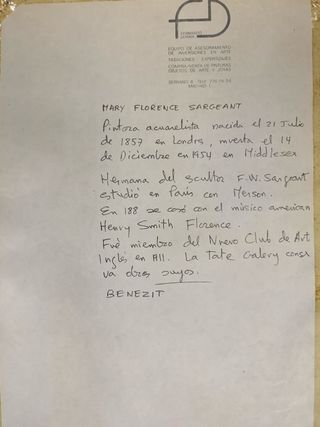 FERNANDO
DURAN
EQUIPO DE ASESORAMIENTO
DE INVERSIONES EN ARTE
TASACIONES Y EXPERTIZAJES
COMPRA-VENTA DE PINTURAS
OBJETOS DE ARTE Y JOYAS
SERRANO
MADRID-1
MARY FLORENCE SARGEANT
Pintora acuarelista nacida el 21 Julio
de 1857 en Londres, muerta el 14
de Diciembre en 1954 en Middlesex
Hermana del scultor F.W. Sargeant
estudió en París con Merson.
En 188 se casó con el músico american
Henry Smith Florence.
Fué miembro del Nuevo Club de Art
Inglés en 1911. La Tate Galery conser
va obras suyas.
BENEZIT